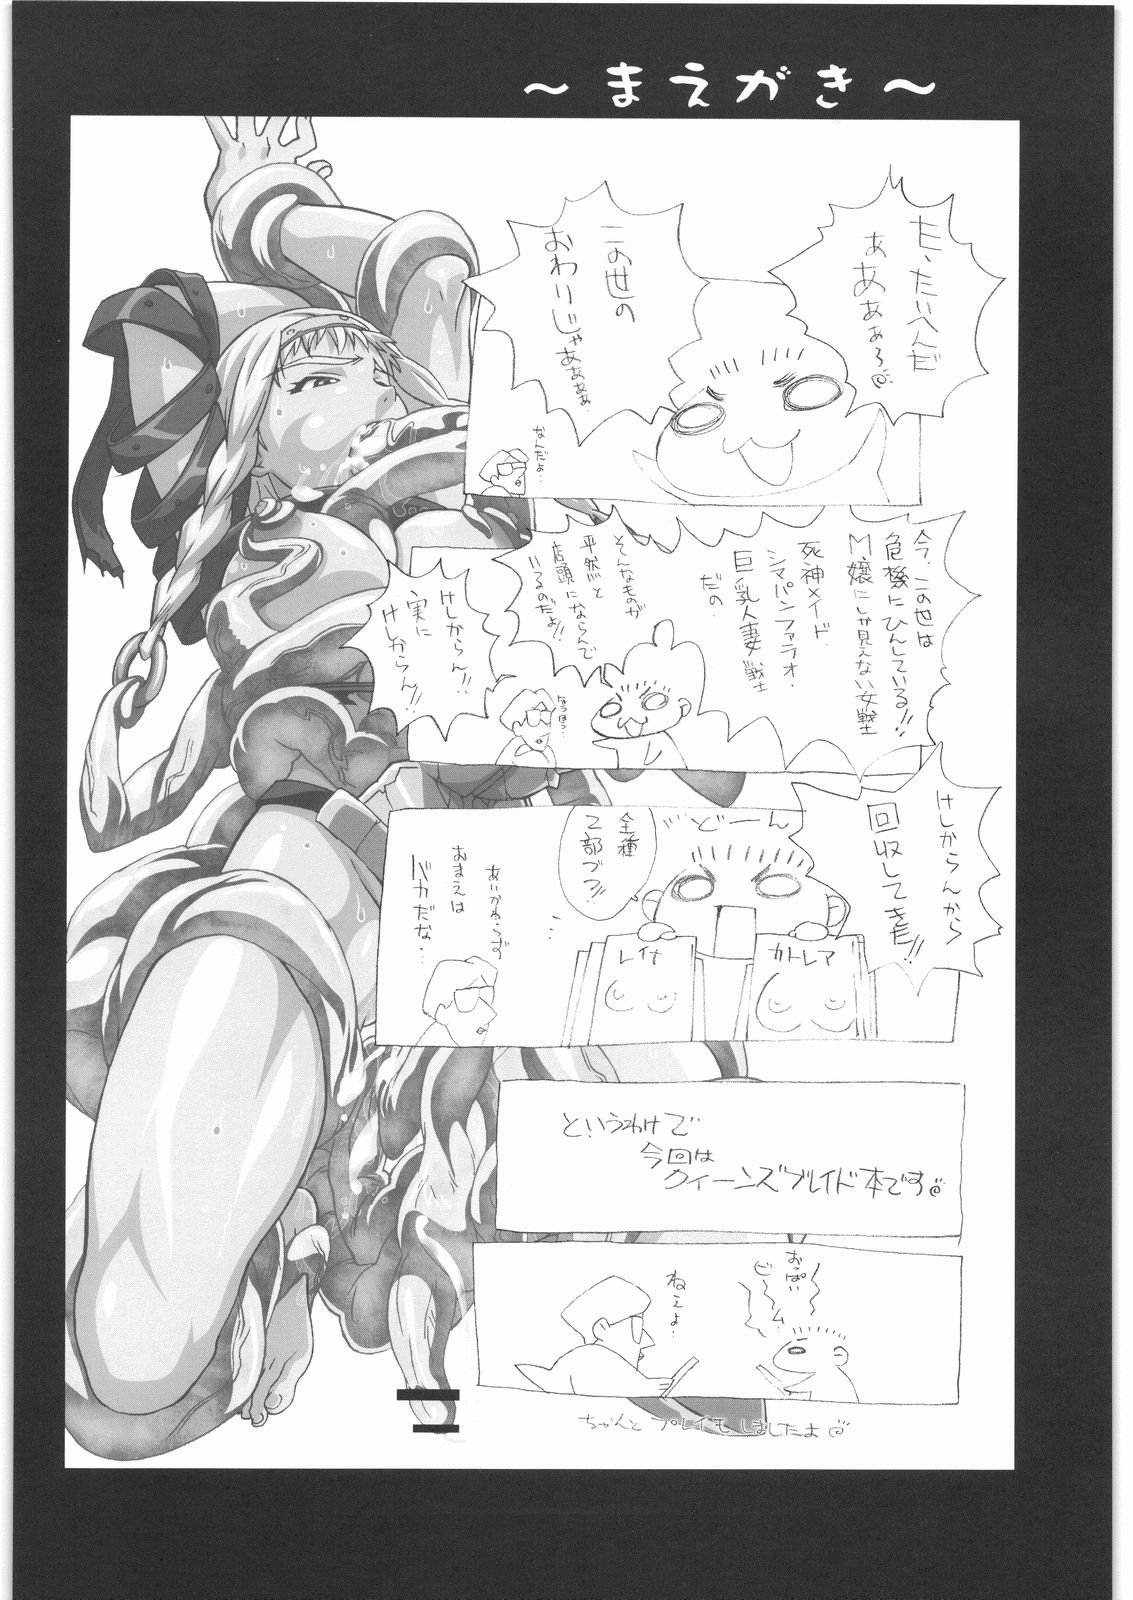 ～まえがき～
た、たいへんだ
ぁあぁぁ～
この世の
おわりじゃあぁぁぁぁ
なんだよ…
今、この世は
危機にひんしている!!
M嬢にしか見えない女戦士
死神メイド、
シマパンファラオ・
巨乳人妻戦士
だの
そんなものが
平然と
店頭にならんで
いるのだよ!!
けしからん!!
実に
けしからん!!
けしからんから
回収してきた!!
どーん
全種
2部づつ!!
レイナ
カトレア
あいかわらず
おまえは
バカだな…
というわけで
今回は
クィーンズブレイド本です
おっぱい
ビーム
ねえよ…
ちゃんと プレイも しましたよ